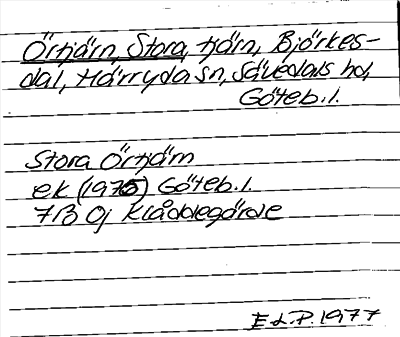 Örtjärn, Stora, tjärn, Björkes-
dal, Härryda sn, Sävedals hd,
Göteb. l.
Stora Örtjärn
ek (1975) Göteb. l.
7B 0j Klåddegärde
E L.P. 1977